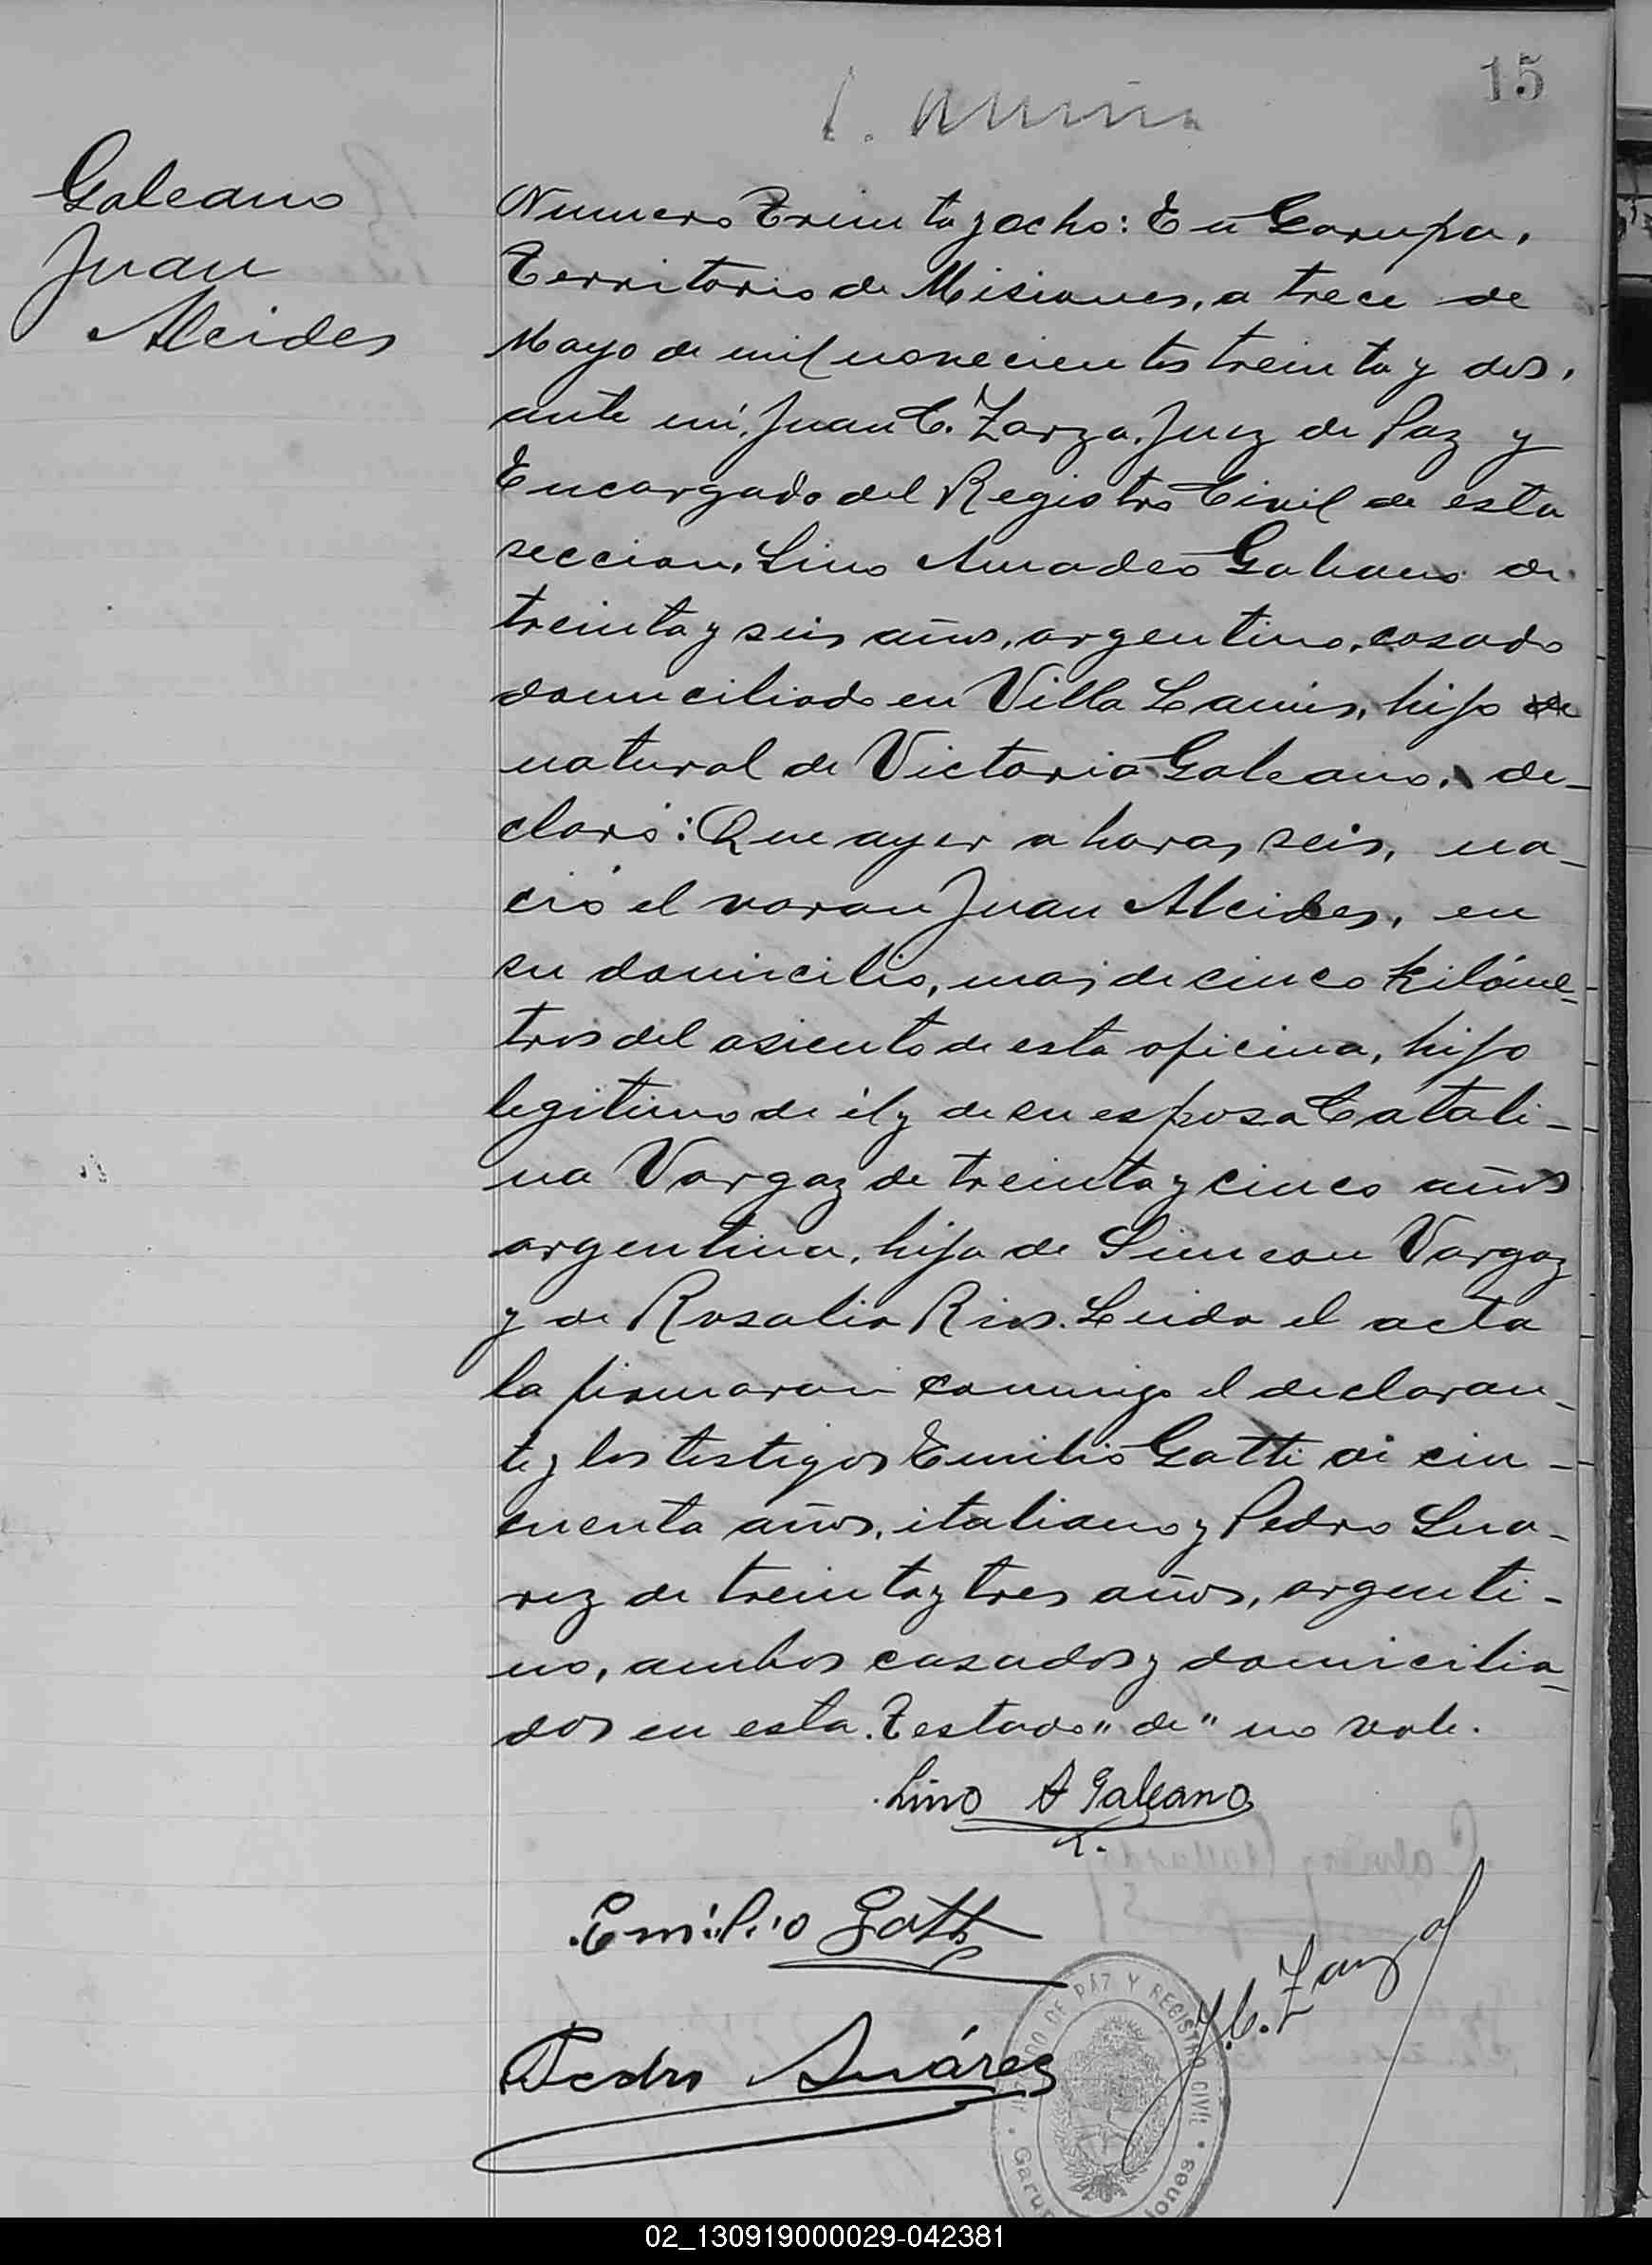 15
Galeano
Juan
Alcides
Numero Treinta y ocho: En Garupa,
Territorio de Misiones, a trece de
Mayo de mil novecientos treinta y dos,
ante mi, Juan C. Zarza, Juez de Paz y
Encargado del Registro Civil de esta
seccion, Lino Amadeo Galeano de
treinta y seis años, argentino, casado
domiciliado en Villa Lanús, hijo de
natural de Victoria Galeano, de-
claró: Que ayer a horas seis, na-
ció el varon Juan Alcides, en
su domicilio, mas de cinco kilóme-
tros del asiento de esta oficina, hijo
legitimo de él y de su esposa Catali-
na Vargaz de treinta y cinco años
argentina, hija de Simeon Vargaz
y de Rosalia Rios. Leida el acta
la firmaron conmigo el declaran-
te y los testigos Emilio Gatti de cin-
cuenta años, italiano y Pedro Sua-
rez de treinta y tres años, argenti-
no, ambos casados y domicilia-
dos en esta. Testado "de" no vale.
Lino A Galeano
Emilio Gatti
J. C. Zarza
Pedro Suárez
JUZGADO DE PAZ Y REGISTRO CIVIL
02_130919000029-042381